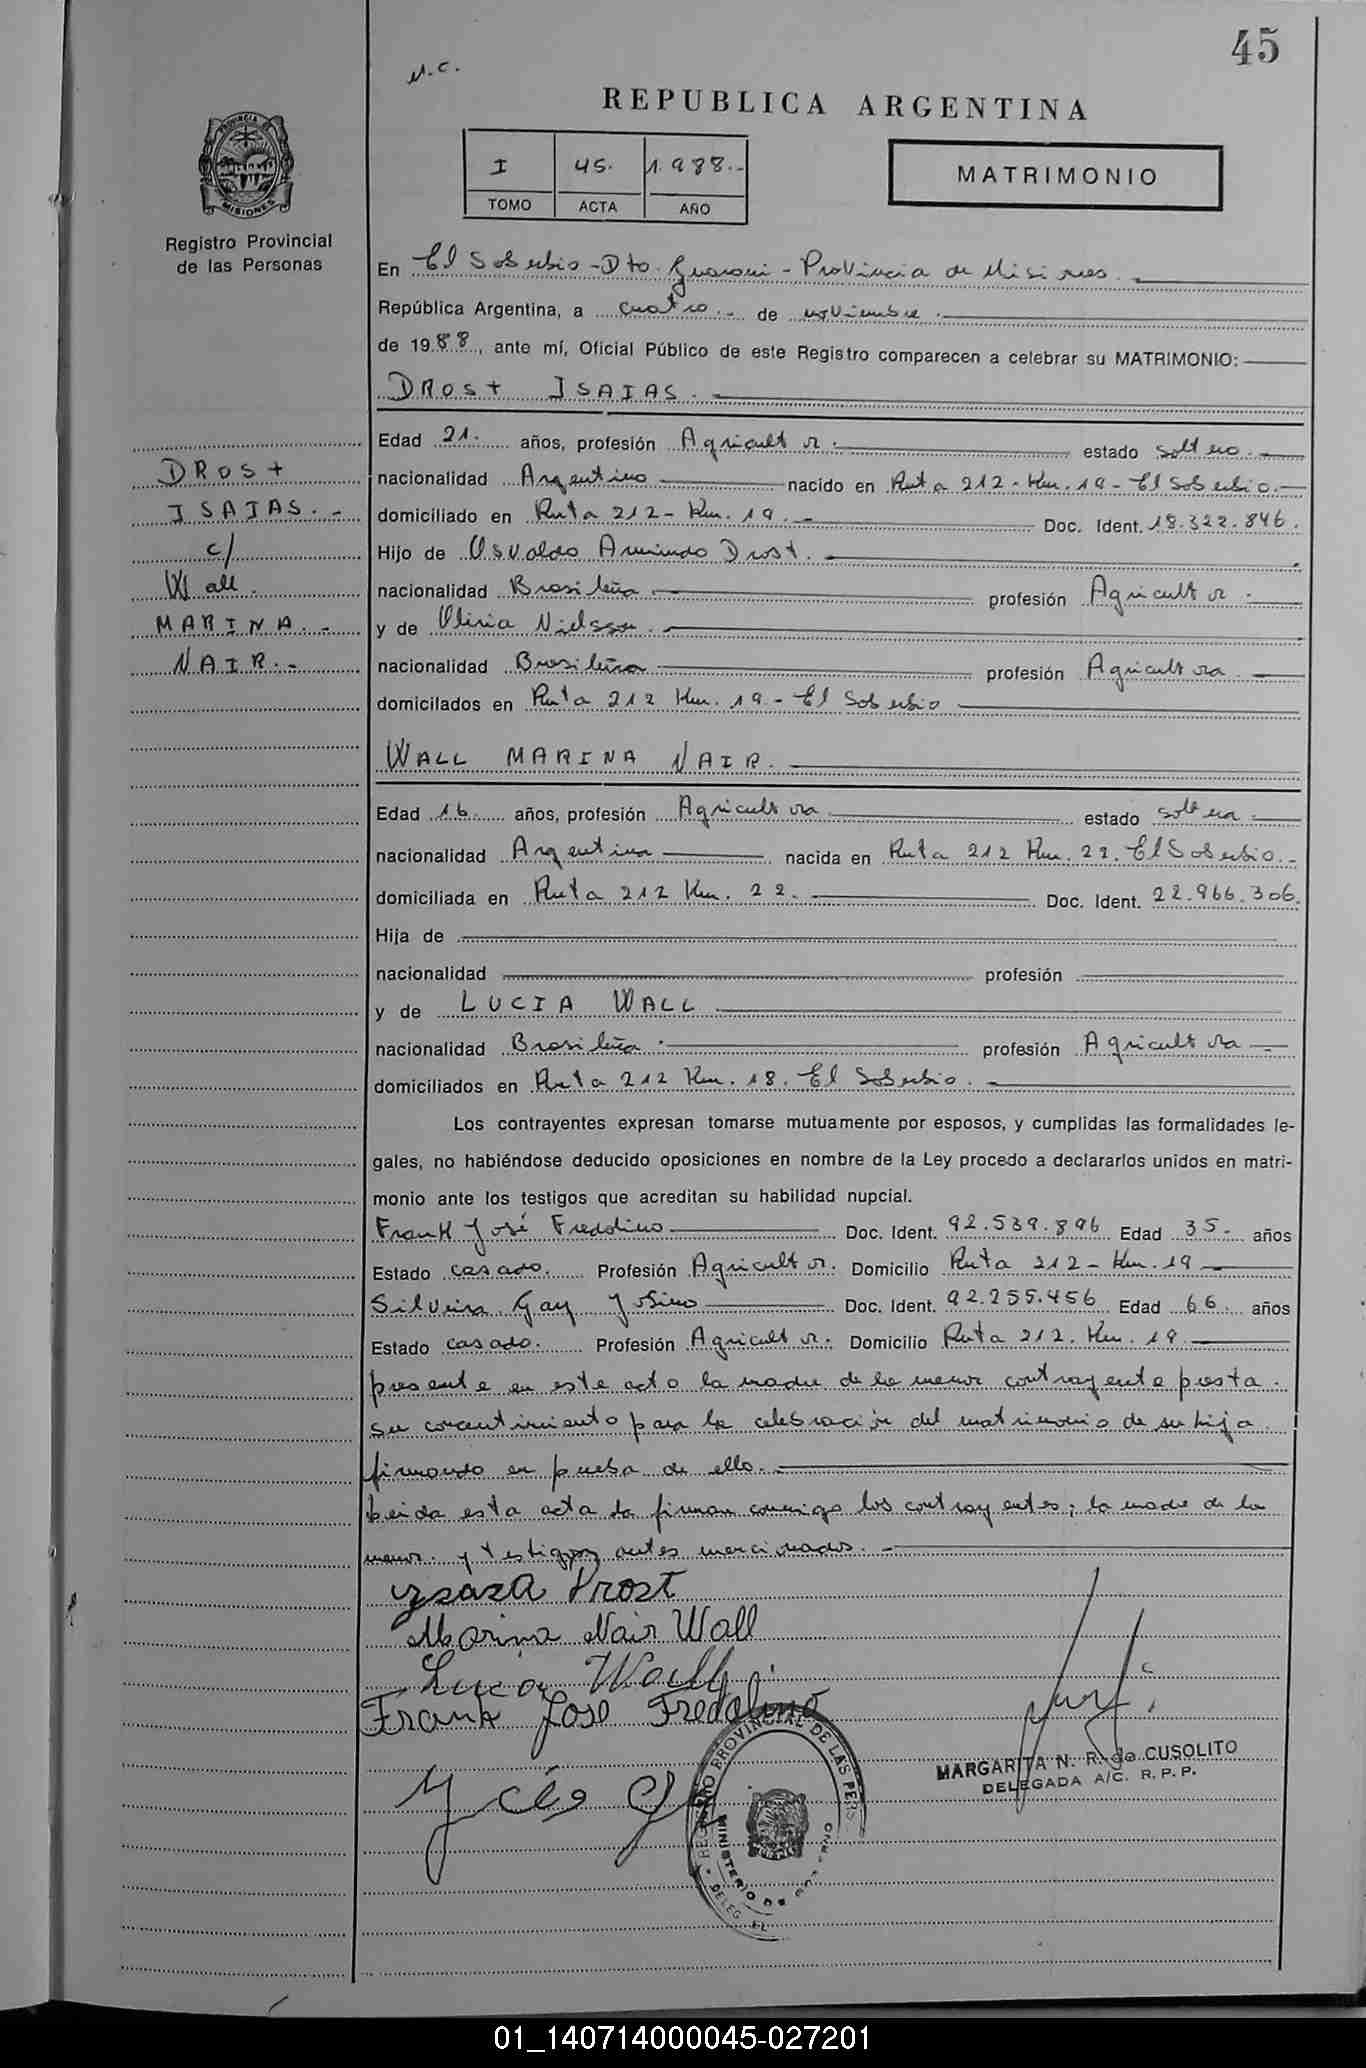 45
N.C.
REPUBLICA ARGENTINA
I 45. 1.988.-
TOMO ACTA AÑO
MATRIMONIO
PROVINCIA DE MISIONES
Registro Provincial
de las Personas
En El Soberbio - Dto. Guarani - Provincia de Misiones.
República Argentina, a cuatro.- de noviembre.
de 1988, ante mí, Oficial Público de este Registro comparecen a celebrar su MATRIMONIO:
DROSt ISAIAS.
Edad 21. años, profesión Agricultor. estado soltero.
nacionalidad Argentino nacido en Ruta 212 - Km. 19 - El Soberbio.
domiciliado en Ruta 212 - Km. 19. - Doc. Ident. 18.322.846.
Hijo de Osvaldo Armindo Drost.
nacionalidad Brasileña profesión Agricultor.
y de Oliria
nacionalidad Brasileña profesión Agricultora.
domicilados en Ruta 212 Km. 19 - El Soberbio
DROSt
ISAIAS.-
c/
Wall.
MARINA.-
NAIR.-
WALL MARINA NAIR.
Edad 16. años, profesión Agricultora estado soltera
nacionalidad Argentina nacida en Ruta 212 Km. 22. El Soberbio.-
domiciliada en Ruta 212 Km. 22. Doc. Ident. 22.966.306.
Hija de
nacionalidad profesión
y de LUCIA WALL
nacionalidad Brasileña. profesión Agricultora
domiciliados en Ruta 212 Km. 18. El Soberbio.
Los contrayentes expresan tomarse mutuamente por esposos, y cumplidas las formalidades le-
gales, no habiéndose deducido oposiciones en nombre de la Ley procedo a declararlos unidos en matri-
monio ante los testigos que acreditan su habilidad nupcial.
Frank José Fredolino Doc. Ident. 92.539.896 Edad 35.- años
Estado casado. Profesión Agricultor. Domicilio Ruta 212 - Km. 19
Silveira Gay Josino Doc. Ident. 92.255.456 Edad 66. años
Estado casado. Profesión Agricultor. Domicilio Ruta 212. Km. 19.
presente en este acto la madre de la menor contrayente presta.
su concentimiento para la celebración del matrimonio de su hija.
firmando en prueba de ello.
Leida esta acta la firman conmigo los contrayentes; la madre de la
menor. y testigos antes mencionados.-
Drost
Marina Nair Wall
Lucia Wall
Frank Jose Fredolino
MARGARITA N. R. de CUSOLITO
DELEGADA A/C. R. P. P.
REGISTRO PROVINCIAL DE LAS PERS
MINISTERIO DE
DELEG. EL
01_140714000045-027201